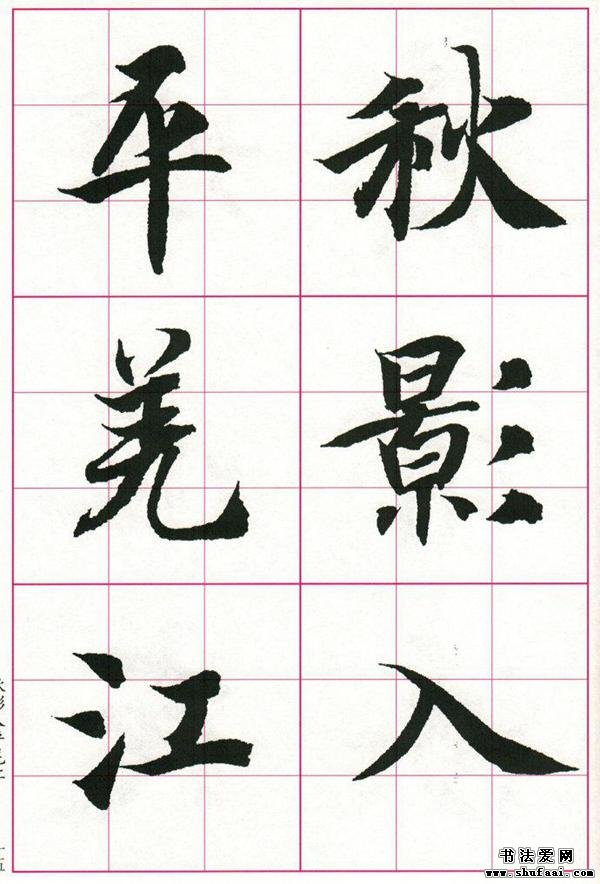 秋影入
平羌江
书法爱网
www.shufaai.com